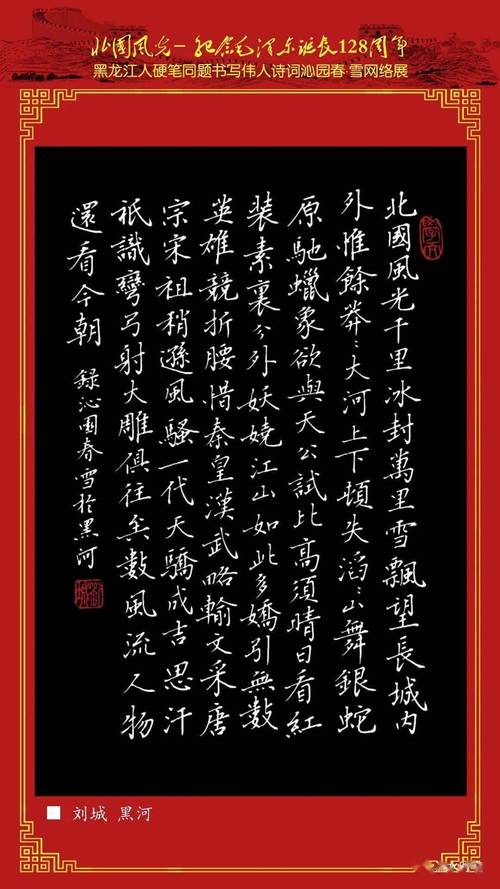 北国风光—纪念毛泽东诞辰128周年
黑龙江人硬笔同题书写伟人诗词沁园春·雪网络展
北國風光千里冰封萬里雪飄望長城内
外惟餘莽〻大河上下頓失滔〻山舞銀蛇
原馳蠟象欲與天公試比高須晴日看紅
裝素裹分外妖嬈江山如此多嬌引無數
英雄競折腰惜秦皇漢武略輸文采唐
宗宋祖稍遜風騷一代天驕成吉思汗
祇識彎弓射大雕俱往矣數風流人物
還看今朝 録沁園春雪於黑河
刘城 黑河